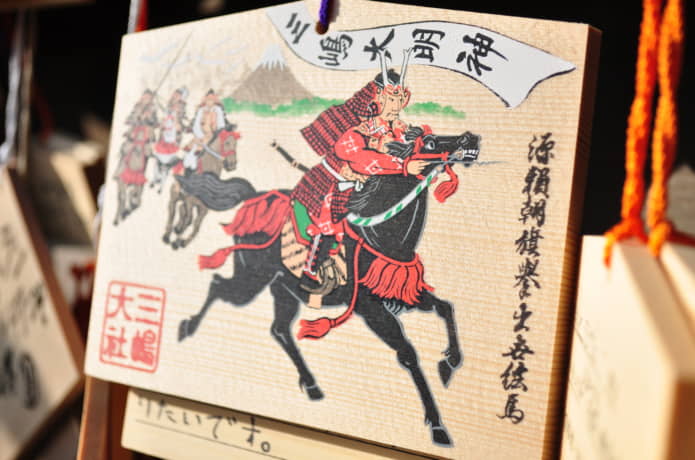 三嶋大明神
源頼朝旗挙出世絵馬
三嶋
大社
りたいです。